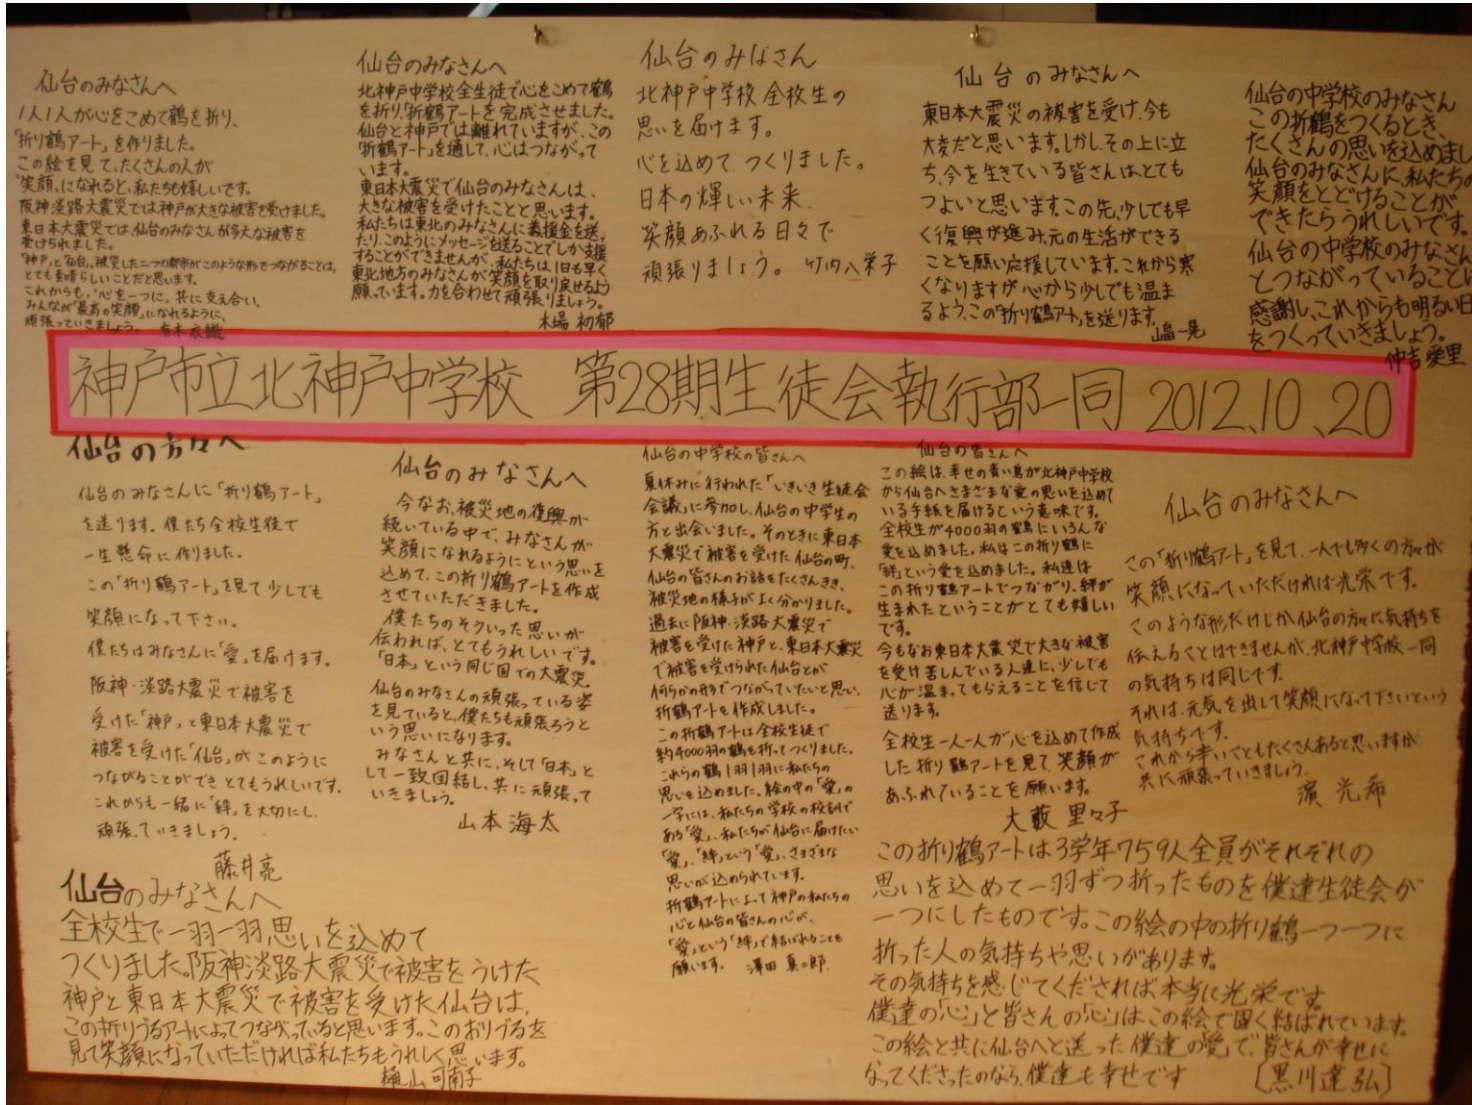 仙台のみなさんへ
1人1人が心をこめて鶴を折り、
「折り鶴アート」を作りました。
この絵を見て、たくさんの人が
"笑顔"になれると、私たちも嬉しいです。
阪神淡路大震災では神戸が大きな被害を受けました。
東日本大震災では仙台のみなさんが多大な被害を
受けられました。
"神戸"と"仙台"、被災した二つの都市がこのような形でつながることは、
とても素晴らしいことだと思います。
これからも、"心を一つに"、共に支え合い、
みんなが"最高の笑顔"になれるように、
頑張っていきましょう。 有木衣織
仙台のみなさんへ
北神戸中学校全生徒で心をこめて鶴
を折り、「折鶴アート」を完成させました。
仙台と神戸では離れていますが、この
「折鶴アート」を通して、心はつながって
います。
東日本大震災で仙台のみなさんは、
大きな被害を受けたことと思います。
私たちは東北のみなさんに義援金を送っ
たり、このようにメッセージを送ることでしか支援
することができませんが、私たちは1日も早く、
東北地方のみなさんが笑顔を取り戻せるよう
願っています。力を合わせて頑張りましょう。
木場 初郁
仙台のみなさん
北神戸中学校 全校生の
思いを届けます。
心を込めて、つくりました。
日本の輝しい未来、
笑顔あふれる日々で
頑張りましょう。 竹内八栄子
仙台のみなさんへ
東日本大震災の被害を受け、今も
大変だと思います。しかし、その上に立
ち、今を生きている皆さんはとても
つよいと思います。この先、少しでも早
く復興が進み、元の生活ができる
ことを願い応援しています。これから寒
くなりますが心から少しでも温ま
るよう、この「折り鶴アート」を送ります。
一晃
仙台の中学校のみなさん
この折鶴をつくるとき、
たくさんの思いを込めまし
仙台のみなさんに、私たちの
笑顔をとどけることが
できたらうれしいです。
仙台の中学校のみなさん
とつながっていることに
感謝し、これからも明るい日
をつくっていきましょう。
仲吉愛里
神戸市立北神戸中学校 第28期生徒会執行部一同 2012.10.20
仙台の方々へ
仙台のみなさんに「折り鶴アート」
を送ります。僕たち全校生徒で
一生懸命に作りました。
この「折り鶴アート」を見て少しでも
笑顔になって下さい。
僕たちはみなさんに「愛」を届けます。
阪神・淡路大震災で被害を
受けた「神戸」と東日本大震災で
被害を受けた「仙台」がこのように
つながることができとてもうれしいです。
これからも一緒に「絆」を大切にし、
頑張っていきましょう。
藤井亮
仙台のみなさんへ
今なお、被災地の復興が
続いている中で、みなさんが
笑顔になれるようにという思いを
込めて、この折り鶴アートを作成
させていただきました。
僕たちのそういった思いが
伝われば、とてもうれしいです。
「日本」という同じ国での大震災。
仙台のみなさんの頑張っている姿
を見ていると、僕たちも頑張ろうと
いう思いになります。
みなさんと共に、そして「日本」と
して一致団結し、共に頑張って
いきましょう。
山本海太
仙台の中学校の皆さんへ
夏休みに行われた「いきいき生徒会
会議」に参加し、仙台の中学生の
方と出会いました。そのときに東日本
大震災で被害を受けた仙台の町、
仙台の皆さんのお話をたくさんきき、
被災地の様子がよく分かりました。
過去に阪神・淡路大震災で
被害を受けた神戸と、東日本大震災
で被害を受けられた仙台とが
何らかの形でつながっていたいと思い、
折鶴アートを作成しました。
この折鶴アートは全校生徒で
約4000羽の鶴を折ってつくりました。
これらの鶴1羽1羽に私たちの
思いを込めました。絵の中の「愛」の
一字には、私たちの学校の校訓で
ある「愛」、私たちが仙台に届けたい
「愛」、「絆」という「愛」、さまざまな
思いが込められています。
折鶴アートによって神戸の私たちの
心と仙台の皆さんの心が、
「愛」という「絆」で結ばれることを
願います。 澤田真二郎
仙台の皆さんへ
この絵は、幸せの青い鳥が北神戸中学校
から仙台へさまざまな愛の思いを込めて
いる手紙を届けるという意味です。
全校生が4000羽の鶴にいろんな
愛を込めました。私はこの折り鶴に
「絆」という愛を込めました。私達は
この折り鶴アートでつながり、絆が
生まれたということがとても嬉しい
です。
今もなお東日本大震災で大きな被害
を受け苦しんでいる人達に、少しでも
心が温まってもらえることを信じて
送ります。
全校生一人一人が心を込めて作成
した折り鶴アートを見て、笑顔が
あふれていることを願います。
大藪里々子
仙台のみなさんへ
この「折り鶴アート」を見て、一人でも多くの方々が
笑顔になっていただければ光栄です。
このような形だけしか仙台の方々に気持ちを
伝えることはできませんが、北神戸中学校一同
の気持ちは同じです。
それは、元気を出して笑顔になって下さいという
気持ちです。
これから辛いこともたくさんあると思いますが
共に頑張っていきましょう。
濵 光希
仙台のみなさんへ
全校生で一羽一羽思いを込めて
つくりました。阪神淡路大震災で被害をうけた
神戸と東日本大震災で被害を受けた仙台は、
この折りづるアートによってつながっていると思います。このおりづるを
見て笑顔になっていただければ私たちもうれしく思います。
樋山可南子
この折り鶴アートは3学年759人全員がそれぞれの
思いを込めて一羽ずつ折ったものを僕達生徒会が
一つにしたものです。この絵の中の折り鶴一つ一つに
折った人の気持ちや思いがあります。
その気持ちを感じてくだされば本当に光栄です。
僕達の「心」と皆さんの「心」はこの絵で固く結ばれています。
この絵と共に仙台へと送った僕達の愛で、皆さんが幸せに
なってくださったのなら、僕達も幸せです 〔黒川達弘〕